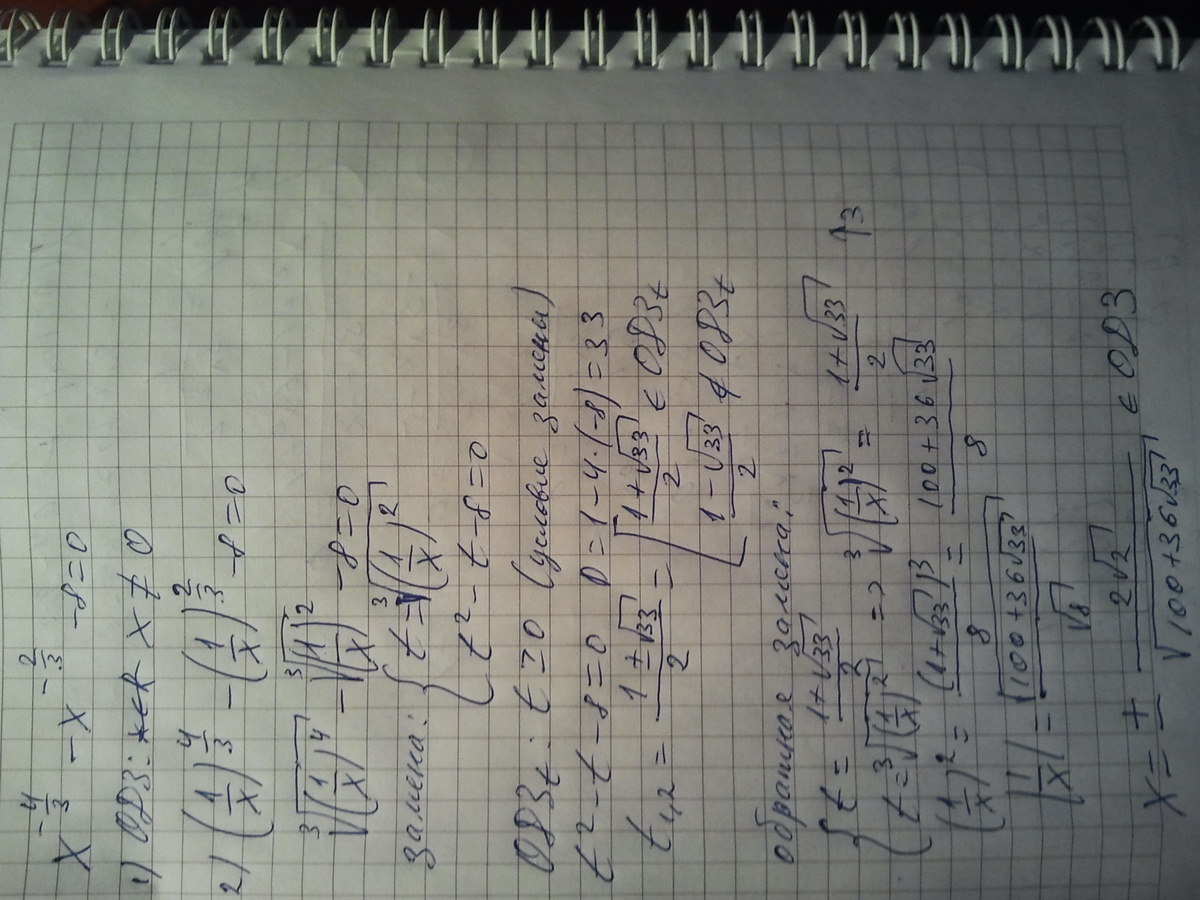 x^(-4/3) - x^(-2/3) - 8 = 0
1) ОДЗ: x ≠ 0
2) (1/x)^(4/3) - (1/x)^(2/3) - 8 = 0
∛((1/x)^4) - ∛((1/x)^2) - 8 = 0
замена: { t = ∛((1/x)^2)
t^2 - t - 8 = 0
ОДЗt: t ≥ 0 (условие замены)
t^2 - t - 8 = 0 D = 1 - 4·(-8) = 33
t1,2 = (1 ± √33)/2 = [ (1 + √33)/2 ∈ ОДЗt
(1 - √33)/2 ∉ ОДЗt
обратная замена:
{ t = (1 + √33)/2
t = ∛((1/x)^2) => ∛((1/x)^2) = (1 + √33)/2 ↑3
(1/x)^2 = (1 + √33)^3/8 = (100 + 36√33)/8
|1/x| = √(100 + 36√33)/√8
x = ± 2√2/√(100 + 36√33) ∈ ОДЗ